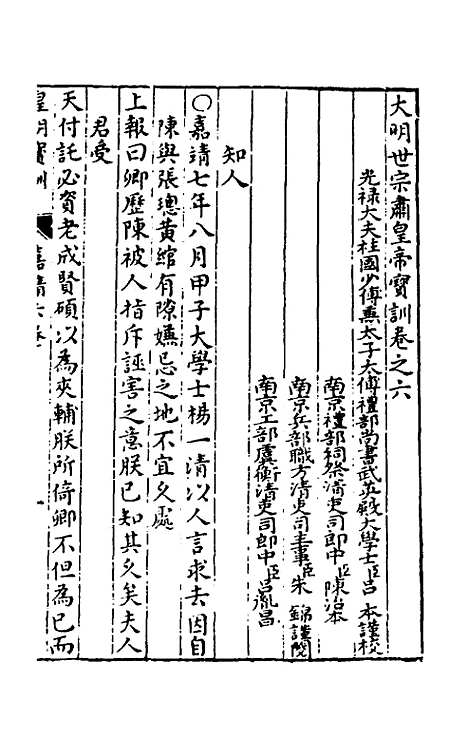 大明世宗肅皇帝寶訓卷之六
光祿大夫柱國少傅兼太子太傅禮部尚書武英殿大學士臣呂 本謹校
南京禮部祠祭清吏司郎中臣陳治本
南京兵部職方清吏司主事臣朱 錦謹閱
南京工部虞衡清吏司郎中臣呂胤昌
知人
○嘉靖七年八月甲子大學士楊一清以人言求去因自
陳與張璁黃綰有隙嫌忌之地不宜久處
上報曰卿歷陳被人指斥誣害之意朕已知其久矣夫人
君受
天付託必資老成賢碩以為夾輔朕所倚卿不但為已而
皇明寶訓 嘉靖六卷 一